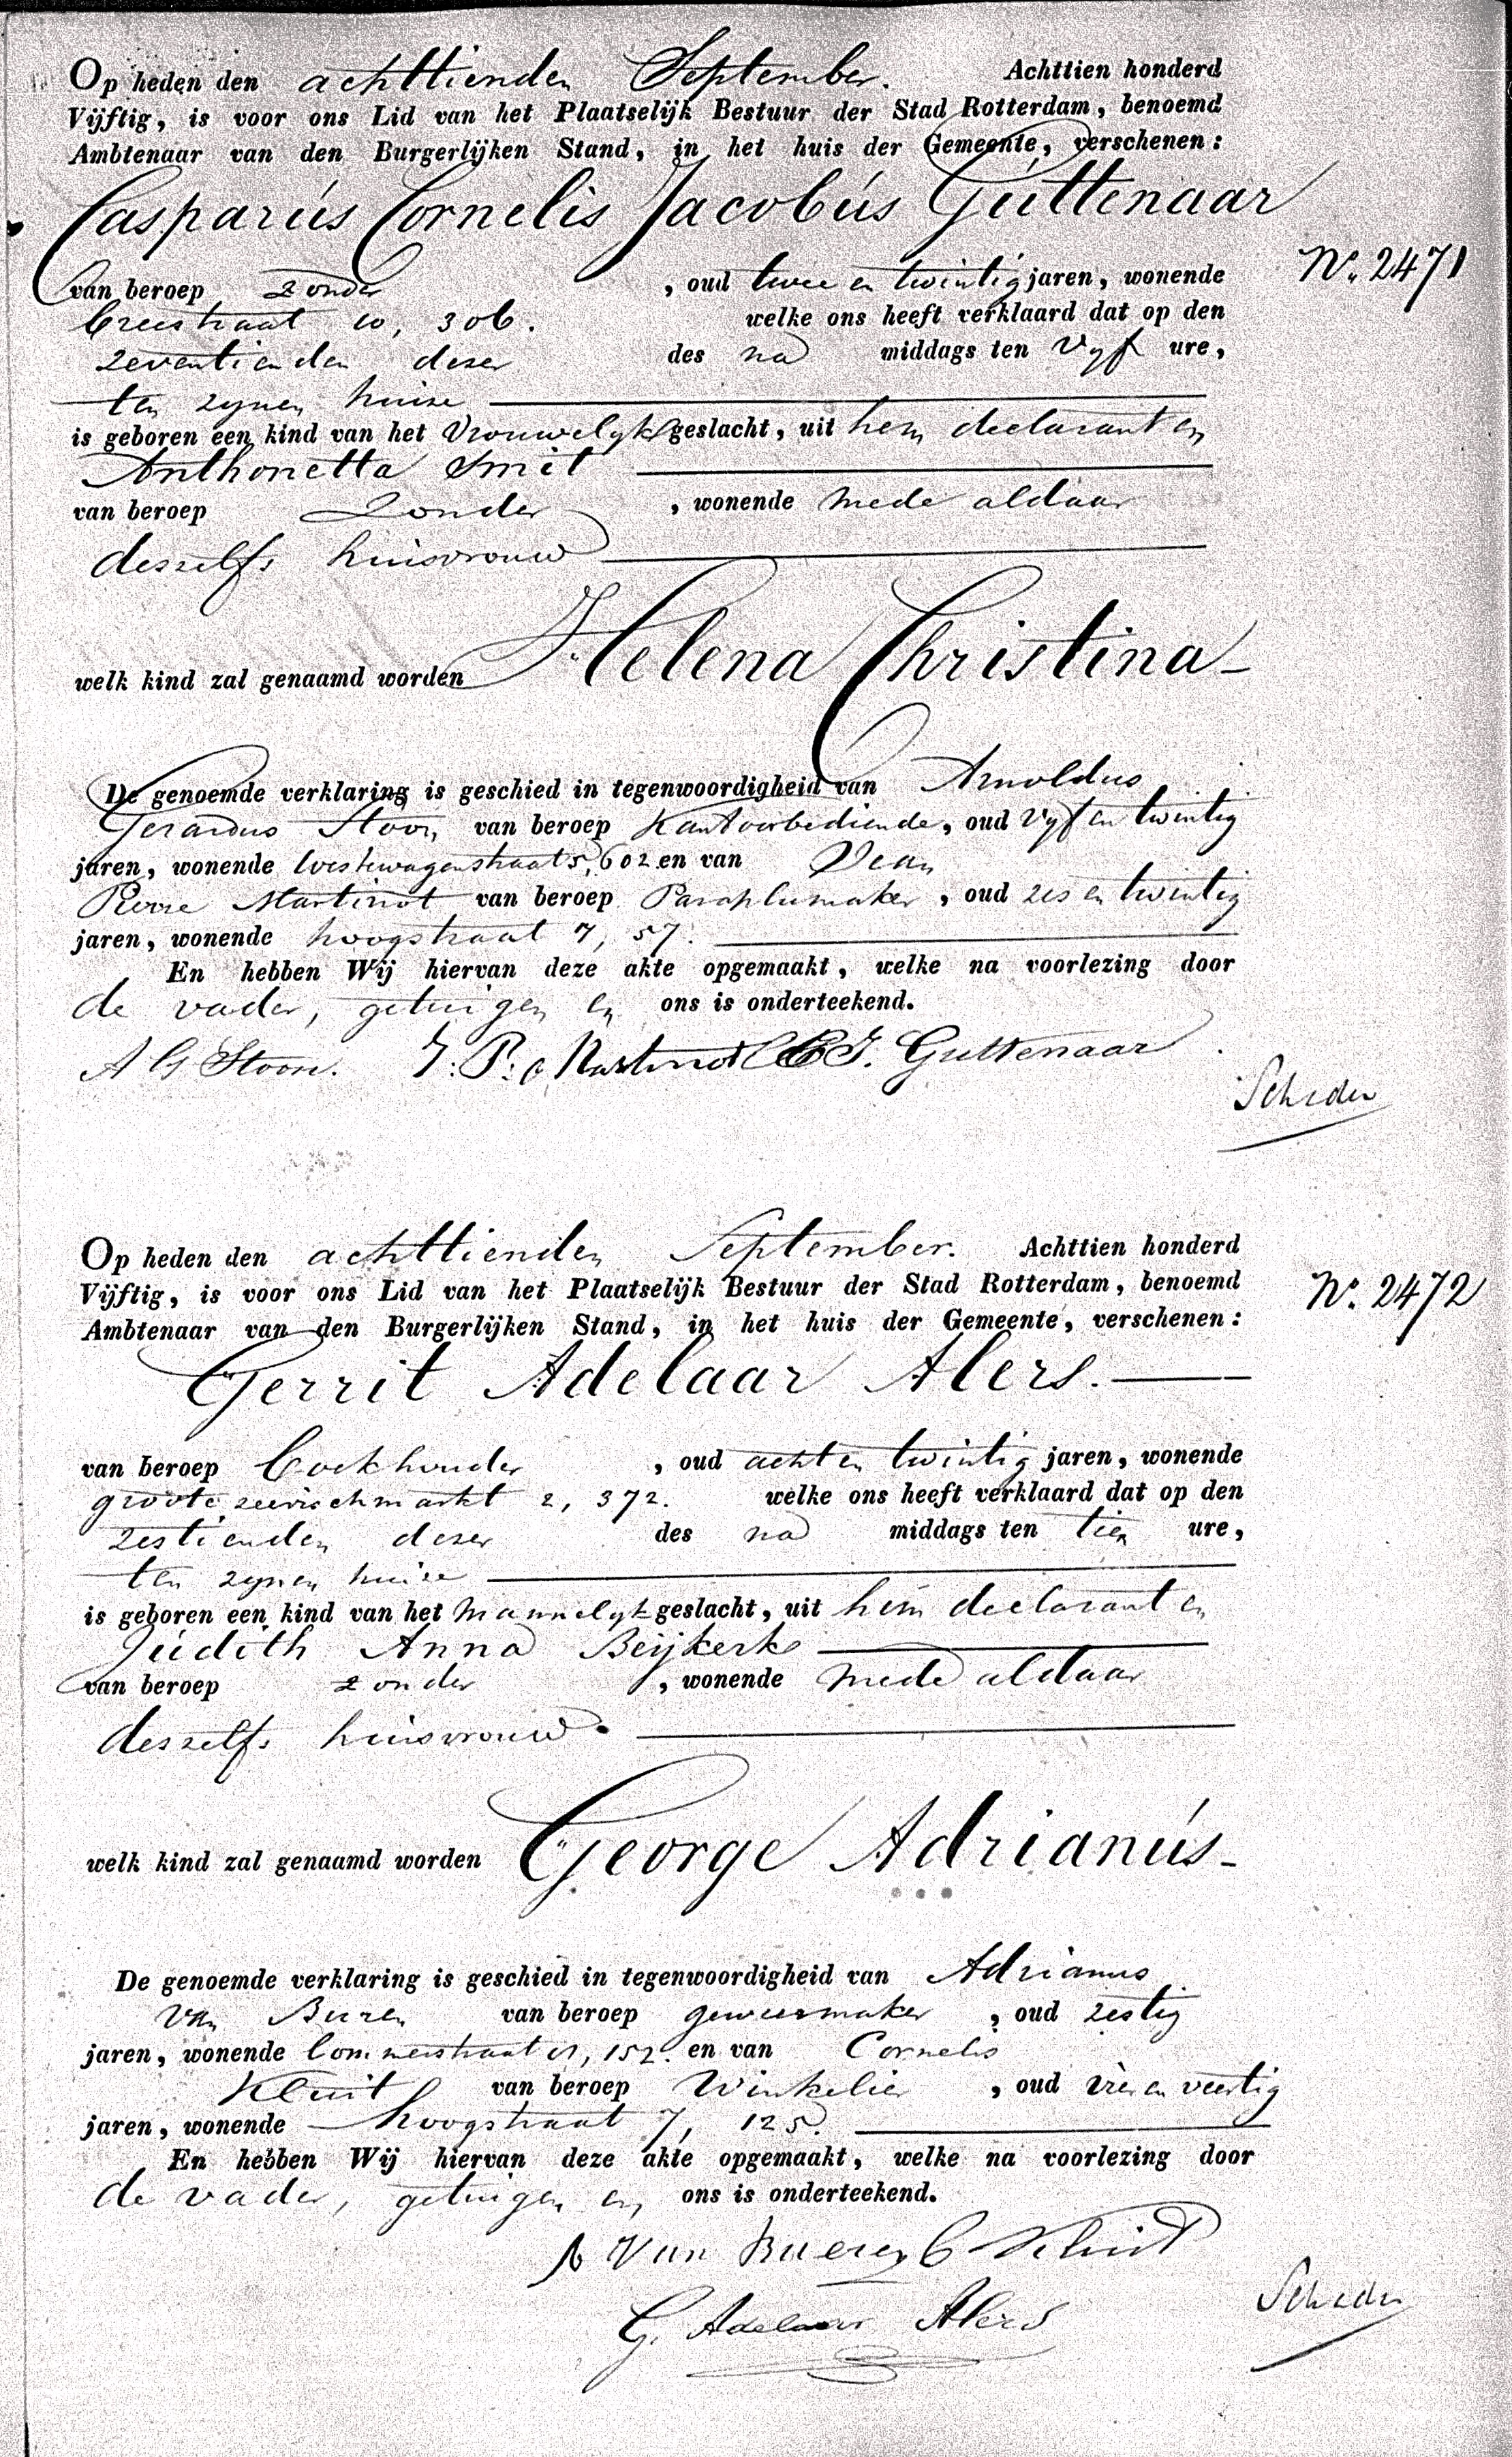 Op heden den achttienden September. Achttien honderd
Vijftig, is voor ons Lid van het Plaatselijk Bestuur der Stad Rotterdam, benoemd
Ambtenaar van den Burgerlijken Stand, in het huis der Gemeente, verschenen:
Casparús Cornelis Jacobús Gúttenaar
Nº. 2471
van beroep zonder, oud twee en twintig jaren, wonende
Breestraat 10, 306. welke ons heeft verklaard dat op den
zeventienden dezer des na middags ten vyf ure,
ten zynen huize
is geboren een kind van het Vrouwelyk geslacht, uit hem declarant en
Anthonetta Smit
van beroep Zonder, wonende mede aldaar
deszelfs huisvrouw
welk kind zal genaamd worden Helena Christina
De genoemde verklaring is geschied in tegenwoordigheid van Arnoldus
Gerardus Stoon van beroep Kantoorbediende, oud vyf en twintig
jaren, wonende Westewagenstraat 5, 602 en van Jean
Pierre Martinot van beroep Paraplumaker, oud zes en twintig
jaren, wonende hoogstraat 7, 57.
En hebben Wij hiervan deze akte opgemaakt, welke na voorlezing door
de vader, getuigen en ons is onderteekend.
A G Stoon. J. P. Martinot C C J. Guttenaar
Op heden den achttienden September. Achttien honderd
Vijftig, is voor ons Lid van het Plaatselijk Bestuur der Stad Rotterdam, benoemd
Nº. 2472
Ambtenaar van den Burgerlijken Stand, in het huis der Gemeente, verschenen:
Gerrit Adelaar Alers.
van beroep Boekhouder, oud acht en twintig jaren, wonende
groote zeevischmarkt 2, 372. welke ons heeft verklaard dat op den
zestienden dezer des na middags ten tien ure,
ten zynen huize
is geboren een kind van het Mannelyk geslacht, uit hem declarant en
Júdith Anna Beijkerk
van beroep zonder, wonende mede aldaar
deszelfs huisvrouw
welk kind zal genaamd worden George Adrianús
De genoemde verklaring is geschied in tegenwoordigheid van Adrianus
van Buren van beroep geweermaker, oud zestig
jaren, wonende 152. en van Cornelis
Kluit van beroep Winkelier, oud vier en veertig
jaren, wonende hoogstraat 7, 125.
En hebben Wij hiervan deze akte opgemaakt, welke na voorlezing door
de vader, getuigen en ons is onderteekend.
A Van Bueren C Kluit
G. Adelaar Alers